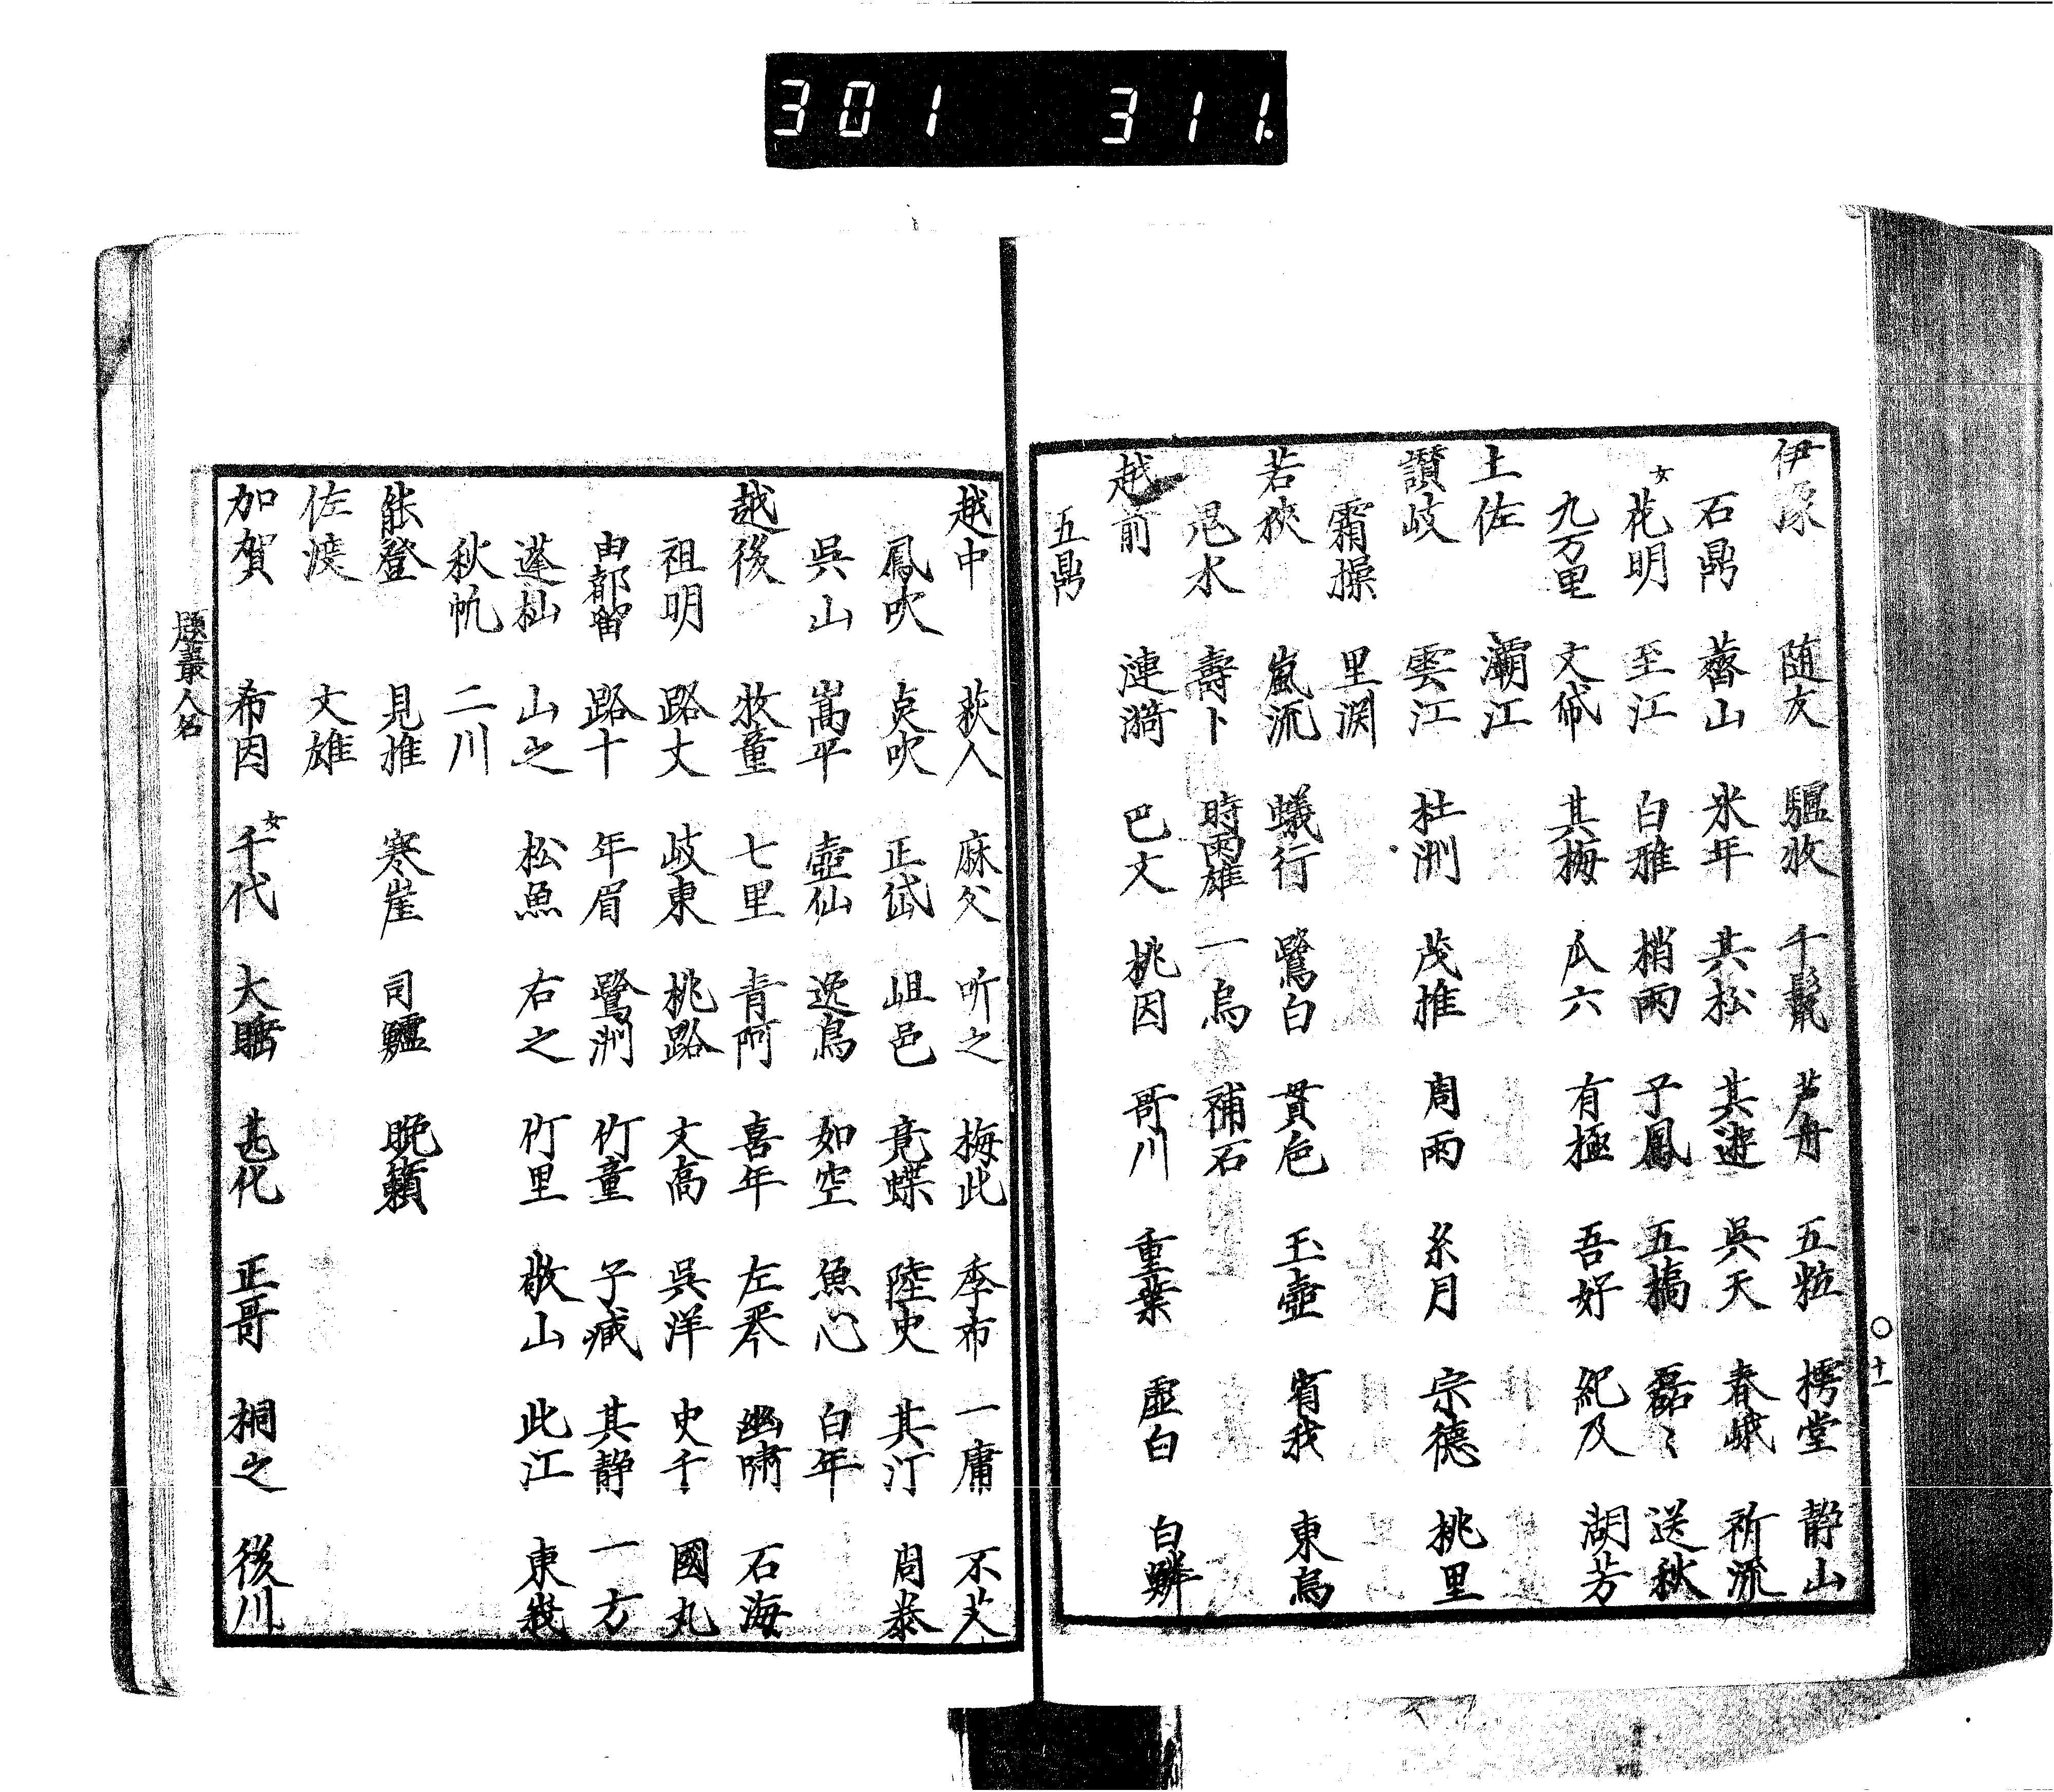 301 311.
伊豫 随友 驢牧 千鬣 芦舟 五粒 樗堂 静山
石鼎 蕃山 氷年 共松 其遊 呉天 春峨 祈流
女 花明 至江 白雅 梢雨 子鳳 五橋 磊〻 送秋
九万里 文帋 其梅 瓜六 有極 吾好 紀及 湖芳
土佐 灞江
讃岐 雲江 杜洲 茂推 周雨 糸月 宗徳 桃里
霜操 里渕
若狹 嵐流 蟻行 鷺白 貫色 玉壺 宥我 東烏
汜水 壽卜 時雨雄 一烏 補石
越前 漣漪 巴文 桃因 哥川 重葉 虚白 白鱗
五鼎
十一
越中 萩人 麻父 听之 梅此 季布 一庸 不艾
鳳吹 貞吹 正岱 岨邑 堯蝶 陸史 其汀 周泰
呉山 嵩平 壺仙 逸鳥 如空 魚心 白年
越後 牧童 七里 青阿 喜年 左琴 幽嘯 石海
祖明 路丈 岐東 桃路 文高 呉洋 史千 國丸
由都留 路十 年眉 鷺洲 竹童 子臧 其静 一方
蓬杣 山之 松魚 右之 竹里 敬山 此江 東幾
秋帆 二川
能登 見推 寒崖 司鱸 晩籟
佐渡 丈雄
加賀 希因 女 千代 大睹 甚化 正哥 桐之 後川
題叢人名